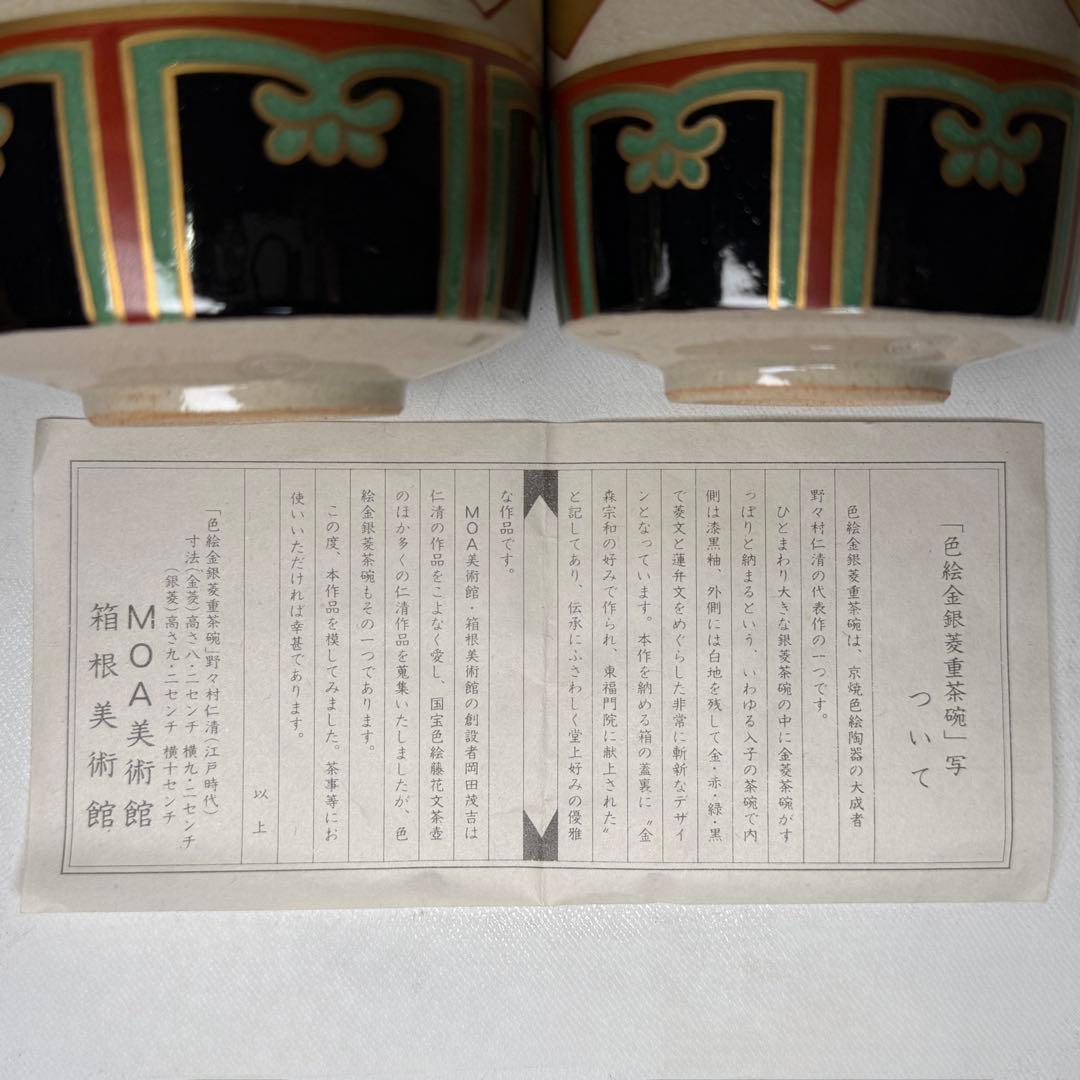 「色絵金銀菱重茶碗」写
ついて
色絵金銀菱重茶碗は、京焼色絵陶器の大成者
野々村仁清の代表作の一つです。
ひとまわり大きな銀菱茶碗の中に金菱茶碗がす
っぽりと納まるという、いわゆる入子の茶碗で内
側は漆黒釉、外側には白地を残して金・赤・緑・黒
で菱文と蓮弁文をめぐらした非常に斬新なデザイ
ンとなっています。本作を納める箱の蓋裏に〝金
森宗和の好みで作られ、東福門院に献上された〟
と記してあり、伝承にふさわしく堂上好みの優雅
な作品です。
MOA美術館・箱根美術館の創設者岡田茂吉は
仁清の作品をこよなく愛し、国宝色絵藤花文茶壺
のほか多くの仁清作品を蒐集いたしましたが、色
絵金銀菱茶碗もその一つであります。
この度、本作品を模してみました。茶事等にお
使いいただければ幸甚であります。
以上
「色絵金銀菱重茶碗」野々村仁清(江戸時代)
寸法(金菱)高さ八・二センチ 横九・二センチ
(銀菱)高さ九・二センチ 横十センチ
MOA美術館
箱根美術館